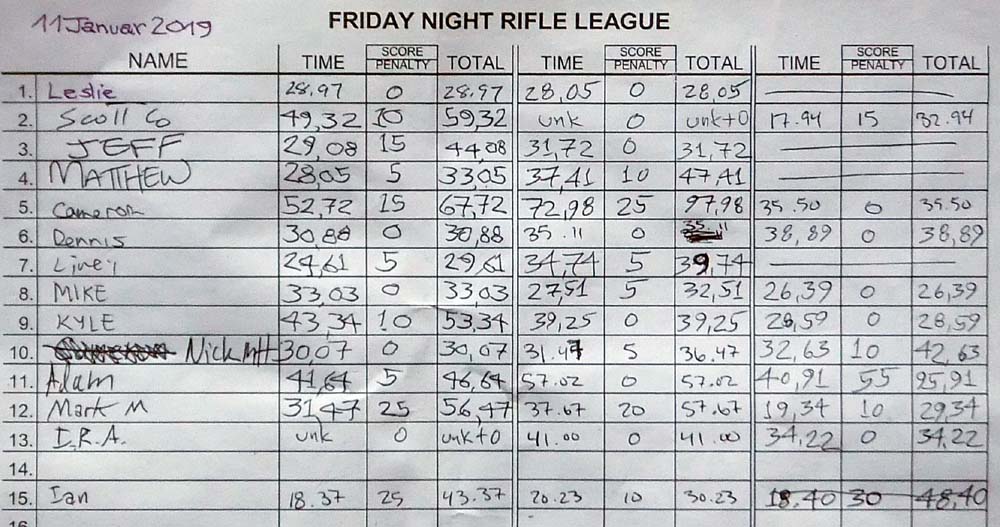 11 Januar 2019
FRIDAY NIGHT RIFLE LEAGUE
NAME TIME SCORE PENALTY TOTAL TIME SCORE PENALTY TOTAL TIME SCORE PENALTY TOTAL
1. Leslie 28.97 0 28.97 28,05 0 28,05
2. Scott Co 49,32 10 59,32 unk 0 unk+0 17.94 15 32.94
3. JEFF 29,08 15 44,08 31,72 0 31,72
4. MATTHEW 28,05 5 33,05 37,41 10 47,41
5. Cameron 52,72 15 67,72 72,98 25 97,98 35.50 0 35.50
6. Dennis 30,88 0 30,88 35.11 0 35.11 38,89 0 38,89
7. 24,61 5 29,61 34,74 5 39,74
8. MIKE 33,03 0 33,03 27,51 5 32,51 26,39 0 26,39
9. KYLE 43,34 10 53,34 39,25 0 39,25 28,59 0 28,59
10. Nick MH 30,07 0 30,07 31.47 5 36.47 32,63 10 42,63
11. Adam 41,64 5 46,64 57.02 0 57.02 40,91 55 95,91
12. Mark M 31,47 25 56,47 37.67 20 57.67 19,34 10 29,34
13. I.R.A. unk 0 unk+0 41.00 0 41.00 34,22 0 34,22
14.
15. Ian 18.37 25 43.37 20.23 10 30.23 18,40 30 48,40
16